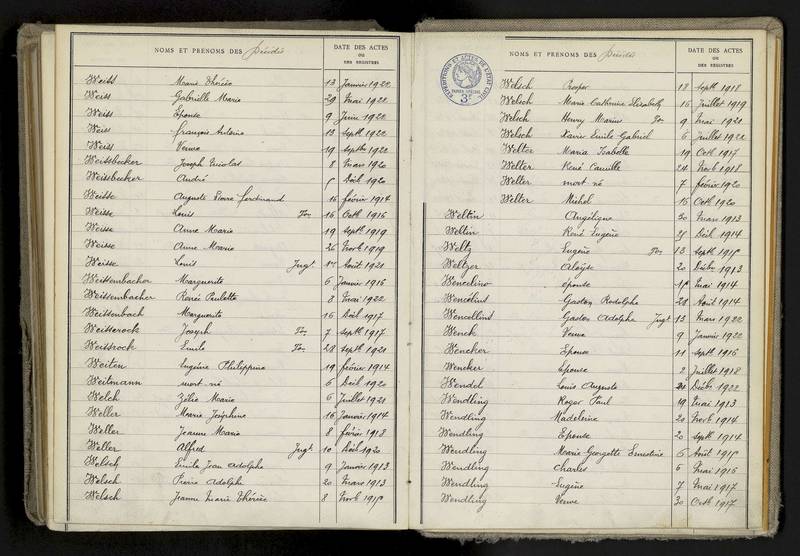 NOMS ET PRÉNOMS DES Décédés
DATE DES ACTES
OU
DES REGISTRES
Weiss Marie Thérèse 13 Janvier 1922
Weiss Gabrielle Marie 29 Mai 1922
Weiss Epouse 9 Juin 1922
Weiss François Antoine 13 Septb 1922
Weiss Veuve 19 Septb 1922
Weissbecker Joseph Nicolas 8 Mars 1920
Weissbecker André Déc 1920
Weisse Auguste Pierre Ferdinand 16 février 1914
Weisse Louis Ton 16 Octb 1916
Weisse Anne Marie 19 Septb 1919
Weisse Anne Marie 26 Novb 1919
Weisse Louis Jugt Août 1921
Weissenbacher Marguerite 6 Janvier 1916
Weissenbacher Renée Paulette 8 Mai 1922
Weissenbach Marguerite 16 1917
Weisserock Joseph Ton 7 Septb 1917
Weissrock Emile Ton 28 Septb 1921
Weiten Eugénie Philippine 19 février 1914
Weitmann mort né 6 1920
Welch Zélie Marie 6 Juillet 1921
Weller Marie Joséphine 16 Janvier 1914
Weller Jeanne Marie 8 février 1918
Weller Alfred Jugt 10 1920
Welsch Emile Jean Adolphe 9 Janvier 1913
Welsch Pierre Adolphe 20 Mars 1913
Welsch Jeanne Marie Thérèse 8 Novb 1915
NOMS ET PRÉNOMS DES Décédés
DATE DES ACTES
OU
DES REGISTRES
EXPÉDITIONS ET ACTES DE L'ÉTAT CIVIL
PAPIER SPÉCIAL
3F
Welsch Prosper 18 Septb 1918
Welsch Marie Catherine Elisabeth 16 Juillet 1919
Welsch Henry Marius Ton 9 Mai 1921
Welsch Xavier Emile Gabriel 6 Juillet 1922
Welter Maria Isabelle 19 Octb 1917
Welter René Camille 24 Novb 1918
Welter mort né 7 février 1920
Welter Michel 15 Octb 1920
Weltin Angélique 30 Mars 1913
Weltin René Eugène 1914
Weltz Eugène Ton 13 Septb 1915
Weltzer Aloyse 20 Décb 1913
Wencelino épouse Mai 1914
Wencélius Gaston Rodolphe 28 Août 1914
Wencellius Gaston Adolphe Jugt 13 Mars 1922
Wenck Veuve 9 Janvier 1922
Wencker Epouse 11 Septb 1916
Wencker Epouse 2 Juillet 1918
Wendel Louis Auguste 21 Décb 1922
Wendling Roger Paul 19 Mai 1913
Wendling Madeleine 20 Novb 1914
Wendling Epouse 20 Septb 1914
Wendling Marie Georgette Ernestine 6 Août 1915
Wendling Charles 6 Mai 1916
Wendling Eugène 7 Mai 1917
Wendling Veuve 30 Octb 1917